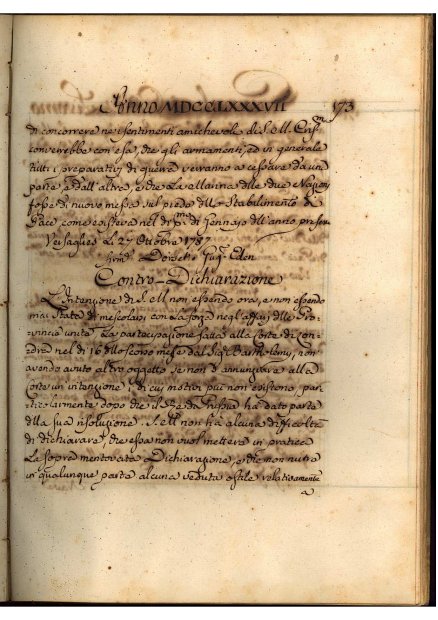 Anno MDCCLXXXVII 173
di concorrere ne' sentimenti amichevoli di S. M. Crisma
converrebbe con essa, che gli armamenti, ed in generale
tutti i preparativj di guerra verranno a cessare da una
parte e dall'altra, e che la Marina delle due Nazioni
fosse di nuovo messa sul piede dello Stabilimento di
Pace come esisteva nel dì pmo di Gennajo dell'anno presen
Versaglies Li 27 Ottobre 1787.
firmd Dorset Gugmo Eden
Contro-Dichiarazione
L'Intenzione di S. M non essendo ora, e non essendo
mai Stata di mescolarsi con la forza negl'affarj delle Pro-
vincie unite La partecipazione fatta alla Corte di Lon-
dra nel dì 16 dello scorso mese dal Sigr. Barthelemy, non
avendo avuto altro oggetto se non d'annunziare alla
Corte un'intenzione, i di cui motivi più non esistono, par-
ticolarmente dopo che il Rè di Prussia ha dato parte
della sua risoluzione. S. M non ha alcuna difficoltà
di dichiarare, che essa non vuol mettere in pratica
La sopra mentovata Dichiarazione, e che non nutre
in qualunque parte alcuna veduta ostile relativamente
a